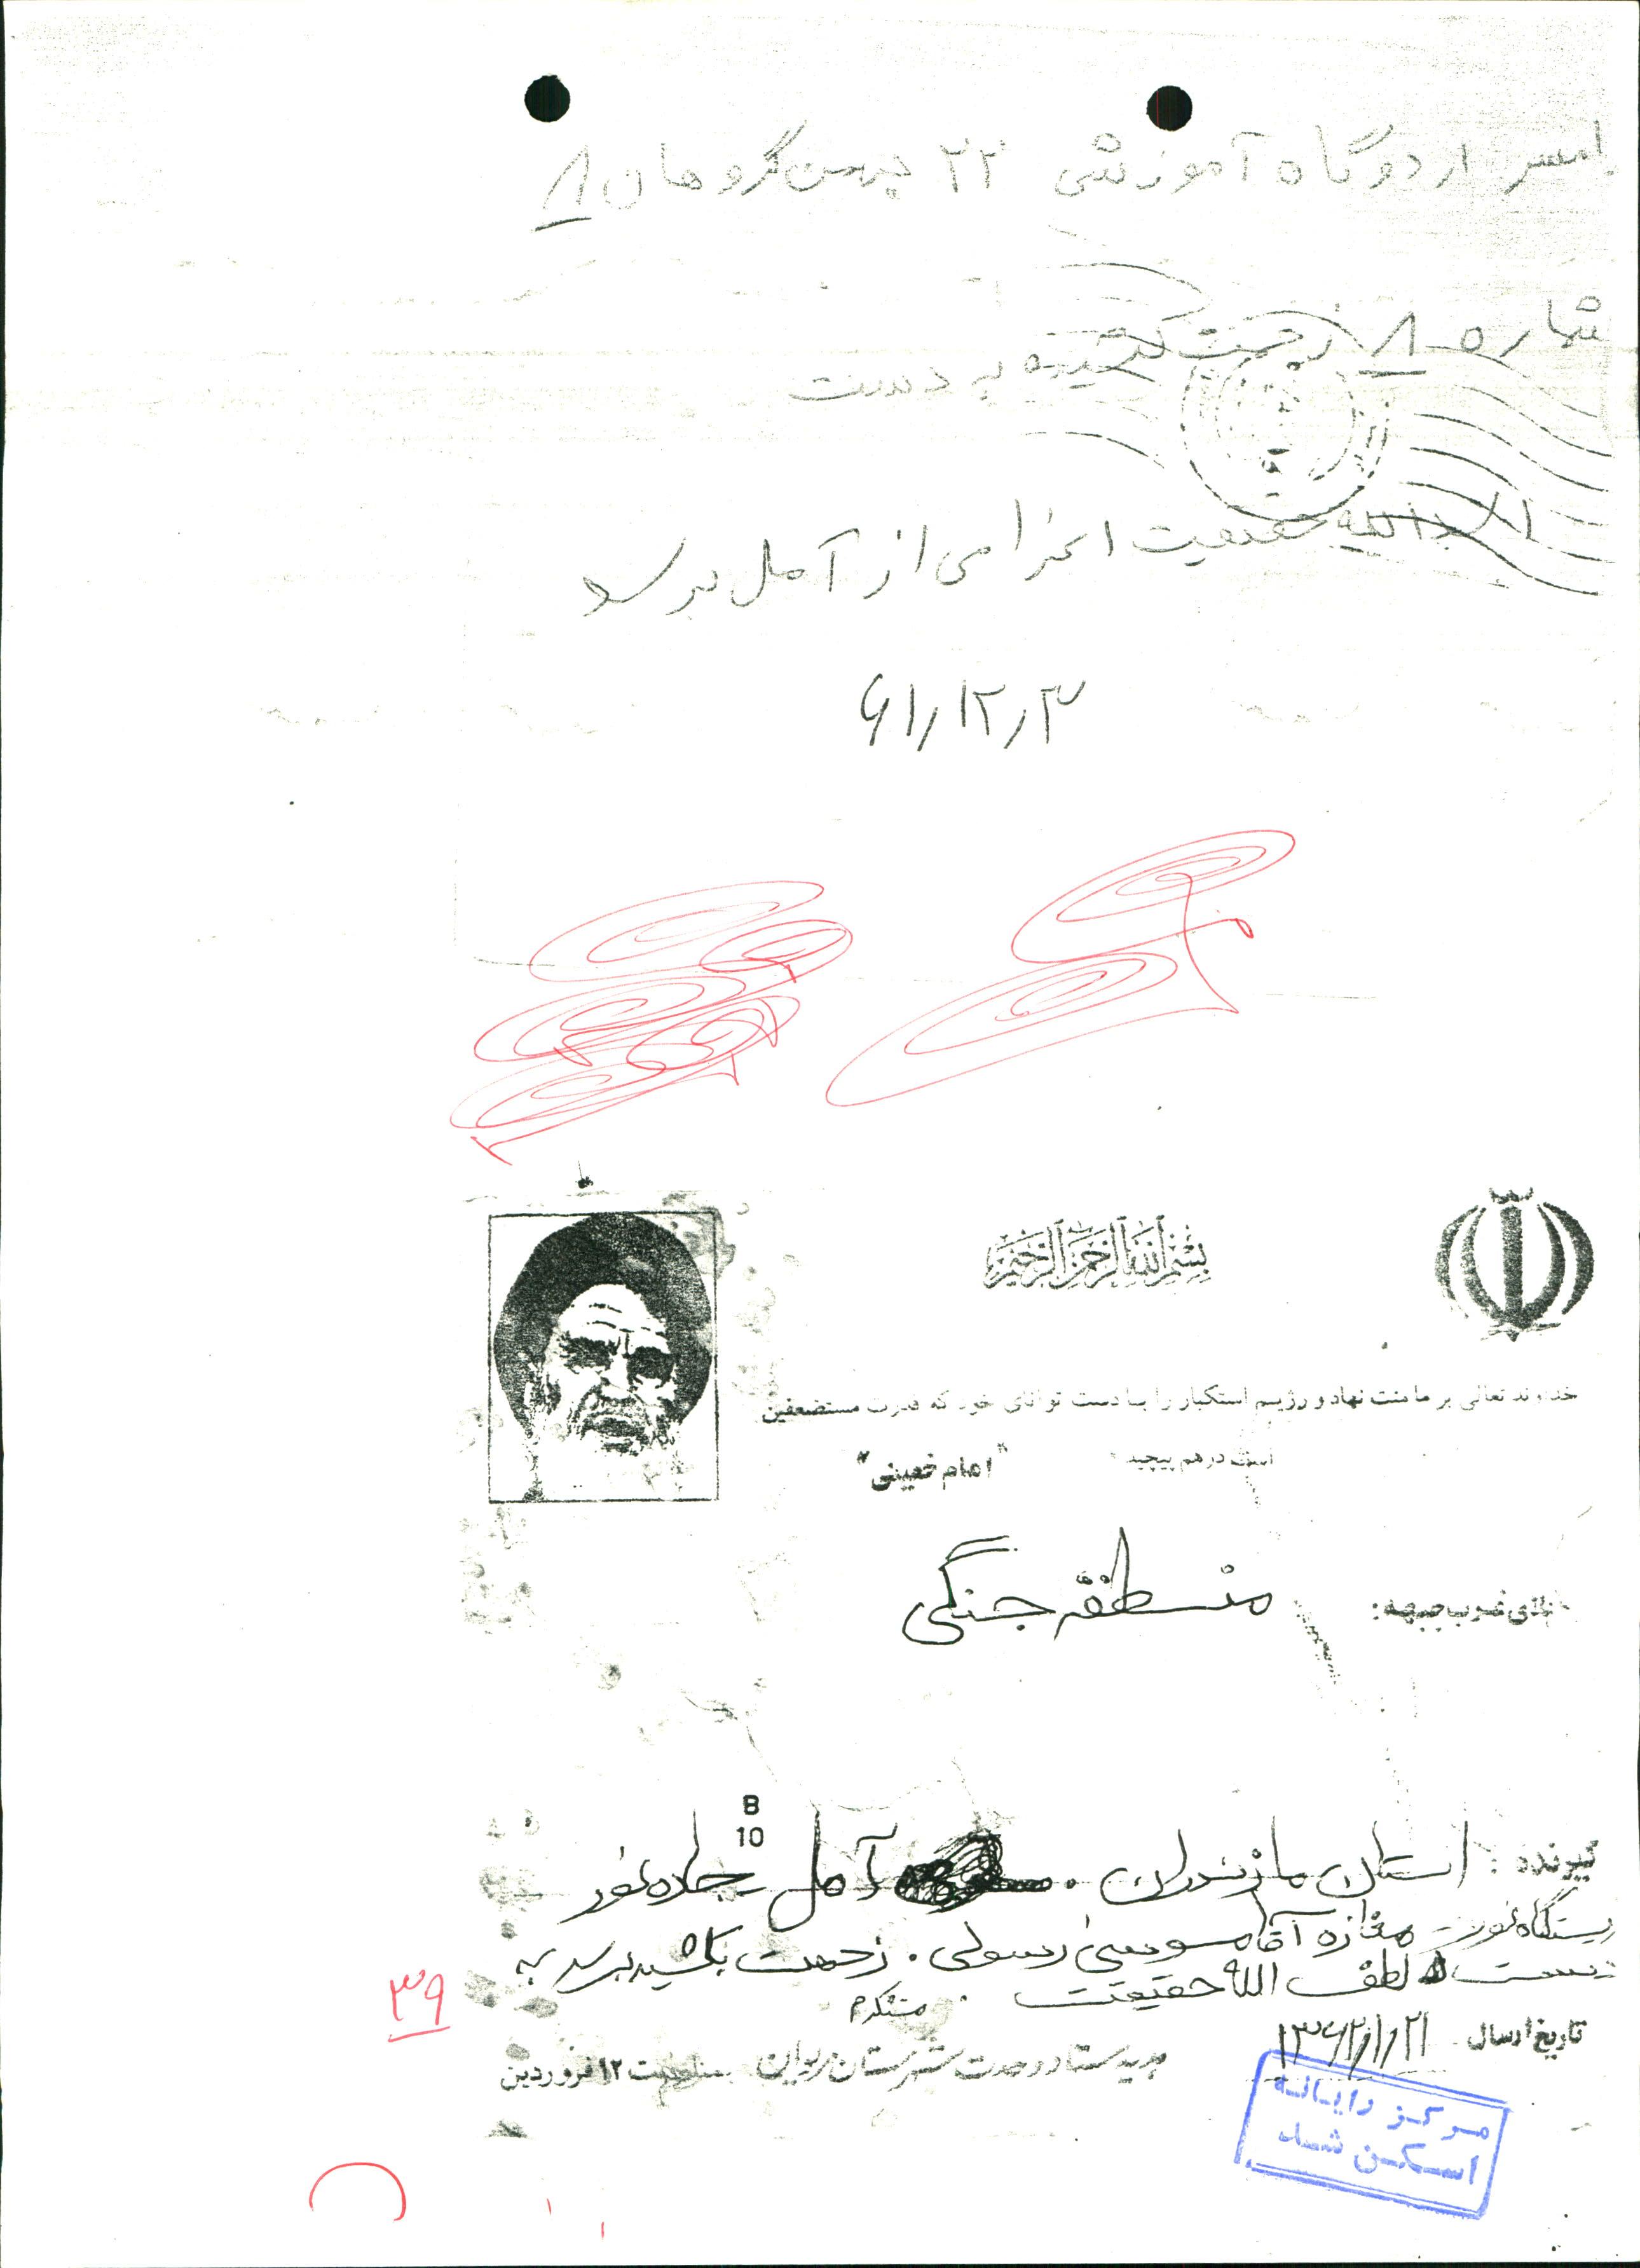 رامسر اردوگاه آموزشی ۲۲ بهمن گروهان ۸
شماره ۸ زحمت کشیده به دست
یدالله حقیقت اعزامی از آمل برسد
۶۱/۱۲/۳
بسم الله الرحمن الرحیم
خداوند تعالی بر ما منت نهاد و رژیم استکبار را با دست توانای خود که قدرت مستضعفین
است در هم پیچید "امام خمینی"
منطقه جنگی
B
10
گیرنده: استان مازندران. آمل جاده نور
ایستگاه نور مغازه آقا موسی رسولی. زحمت بکشید برسد به
دست لطف الله حقیقت. متشکرم
۳۹
تاریخ ارسال ۱۳۶۲/۱/۲۱
هدیه ستاد وحدت شهرستان بمناسبت ۱۲ فروردین
مرکز رایانه
اسکن شد